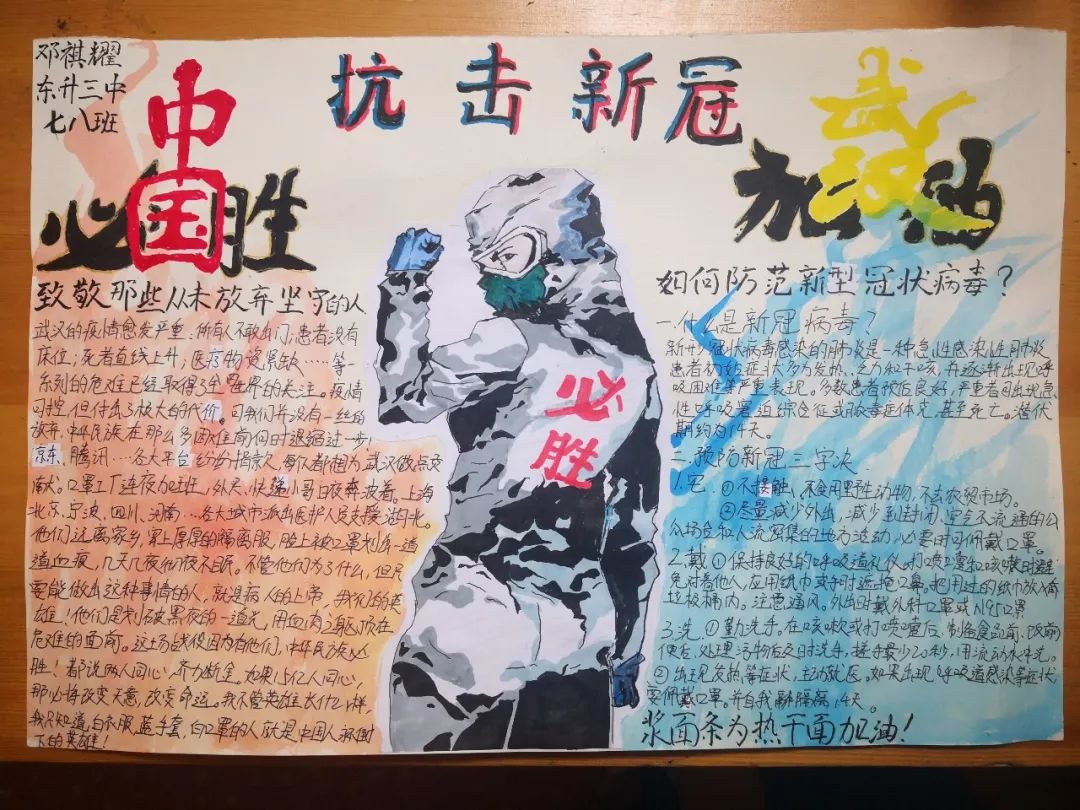 邓祺耀
东升三中
七八班
抗击新冠
中国
必胜
武汉
加油
致敬那些从未放弃坚守的人
武汉的疫情愈发严重:所有人不敢出门;患者没有
床位;死者直线上升;医疗物资紧缺……等一
系列的危难已经取得了全世界的关注。疫情
可控,但付出了极大的代价。可我们并没有一丝的
放弃,中华民族在那么多困难前何时退缩过一步!
京东、腾讯……各大平台纷纷捐款,每个人都想为武汉做点贡
献。口罩工厂连夜加班,外卖、快递小哥日夜奔波着。上海
北京、宁波、四川、河南……各大城市派出医护人员支援湖北。
他们远离家乡,穿上厚厚的隔离服,脸上被口罩利出一道
道血痕,几天几夜彻夜不眠。不管他们为了什么,但只
要能做出这种事情的人,就是病人的上帝,我们的英
雄!他们是刺破黑夜的一道光,用血肉之躯顶在
危难的面前。这场战役因为有他们,中华民族必
胜!都说两人同心,齐力断金。如果15亿人同心,
那必将改变天意,改变命运。我不管英雄长什么样,
我只知道,白衣服,蓝手套,白口罩的人就是中国人
下的英雄!
必胜
如何防范新型冠状病毒?
一.什么是新冠病毒?
新型冠状病毒感染的肺炎是一种急性感染性肺炎
患者初始症状多为发热、乏力和干咳,并逐渐出现呼
吸困难等严重表现。多数患者预后良好,严重者可出现急
性呼吸窘迫综合征或脓毒症休克,甚至死亡。潜伏
期约为14天。
二.预防新冠三字决
1.宅 ①不接触,不食用野生动物,不去农贸市场。
②尽量减少外出,减少到封闭、空气不流通的公
众场合和人流密集的地方活动,必要时可佩戴口罩。
2.戴 ①保持良好的呼吸道礼仪,打喷嚏和咳嗽时避
免对着他人,应用纸巾或手肘遮掩口鼻。把用过的纸巾放入有盖
垃圾桶内。注意通风。外出时戴外科口罩或N95口罩
3.洗 ①勤洗手。在咳嗽或打喷嚏后、制备食品前、饭前
便后、处理污物后及时洗手,搓手最少20秒,用流动水冲洗。
②出现发热等症状,主动就医。如果出现呼吸道感染等症状,
要佩戴口罩。并自我隔离14天。
浆面条为热干面加油!